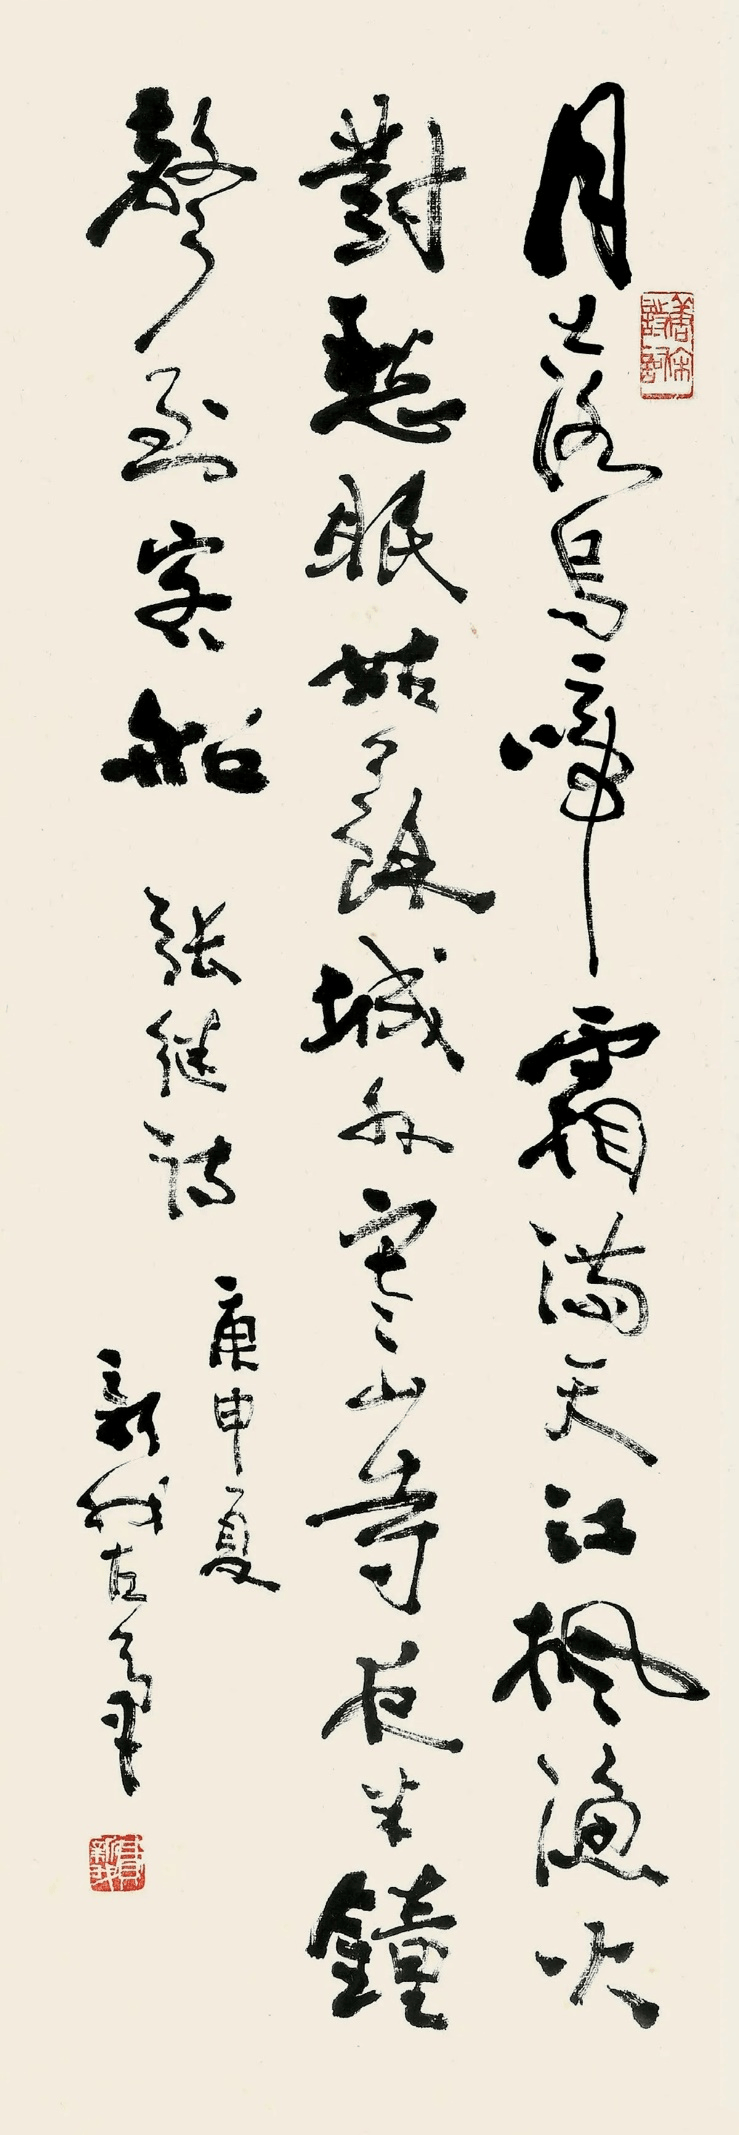 月落烏啼霜满天江枫漁火
對愁眠姑蘇城外寒山寺夜半鐘
聲到客船
張继詩
庚申夏
新我左筆